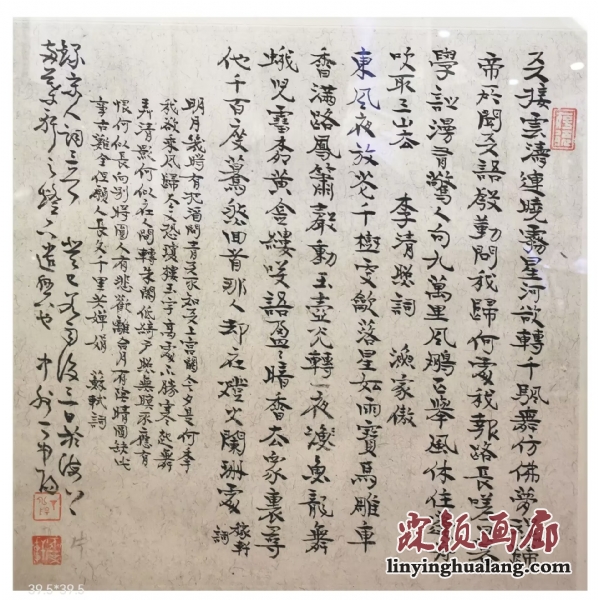 天接雲濤連曉霧星河欲轉千帆舞仿佛夢魂歸
帝所聞天語殷勤問我歸何處我報路長嗟日
學詩漫有驚人句九萬里風鵬正舉風休住蓬舟
吹取三山去 李清照詞 漁家傲
東風夜放花千樹更吹落星如雨寶馬雕車
香滿路鳳簫聲動玉壺光轉一夜魚龍舞
蛾兒雪柳黃金縷笑語盈盈暗香去眾裏尋
他千百度驀然回首那人却在燈火闌珊處 稼軒詞
明月幾時有把酒問青天不知天上宮闕今夕是何年
我欲乘風歸去又恐瓊樓玉宇高處不勝寒起舞
弄清影何似在人間轉朱閣低綺戶照無眠不應有
恨何似長向別時圓人有悲歡離合月有陰晴圓缺此
事古難全但願人長久千里共嬋娟 蘇軾詞
錄宋人詞三首 癸巳 後三日於海上
霖颖画廊
linyinghualang.com
39.5*39.5